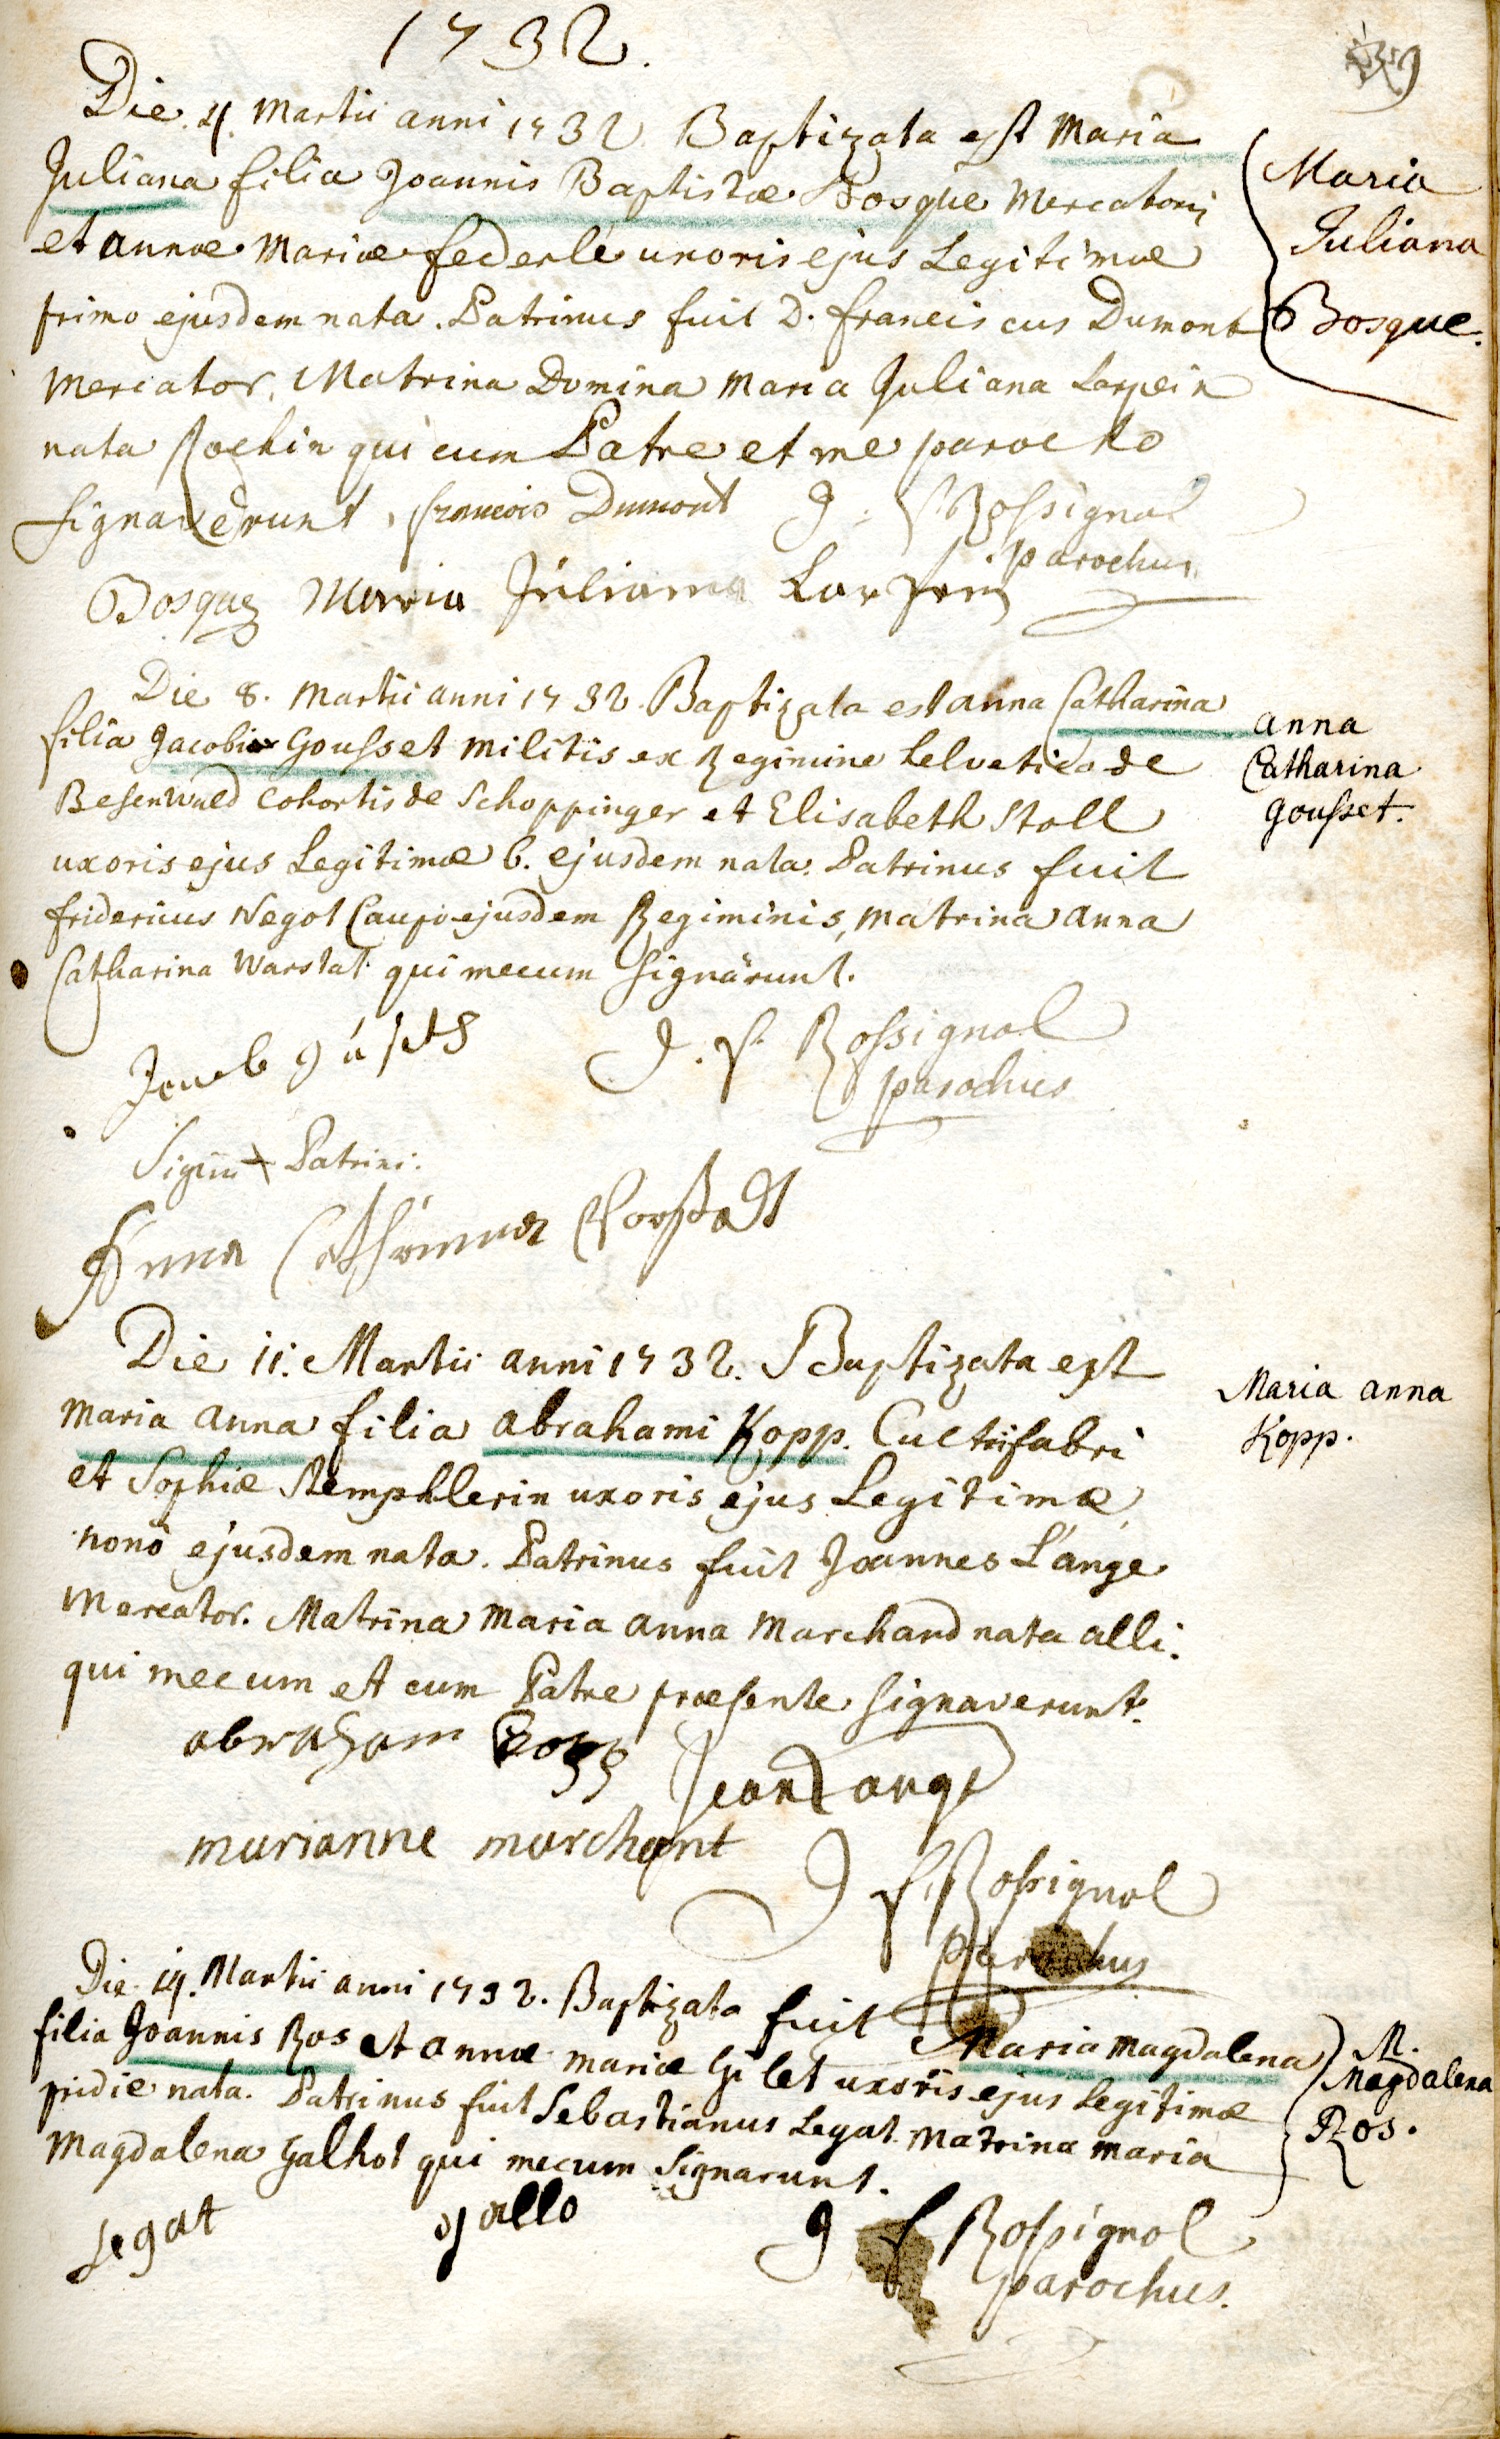 1732.
Die 4. Martii anni 1732 Baptizata est Maria
Juliana filia Joannis Baptistæ Bosque Mercatoris
et annæ Mariæ federlé uxoris ejus Legitimæ
primo ejusdem nata. Patrinus fuit D. franciscus Dumont
Mercator, Matrina Domina Maria Juliana Larpein
nata qui cum Patre et me parocho
signaverunt, francois Dumont J. f. Rossignol
parochus
Bosque Maria Juliana
Maria
Juliana
Bosque.
Die 8. Martii anni 1732. Baptizata est anna Catharina
filia Jacobi Gousset militis ex Regimine helvetico de
Besenwald Cohortis de Schoppinger et Elisabeth Stoll
uxoris ejus Legitimæ 6. ejusdem nata. Patrinus fuit
fridericus Negot Caupo ejusdem Regiminis, matrina anna
Catharina Warstat qui mecum signârunt.
anna
Catharina
gousset.
J. f. Rossignol
parochus
Signum + Patrini.
Anna
Die 11. Martii anni 1732. Baptizata est
Maria anna filia abrahami Kopp. Cultrifabri
et Sophiæ Stemphlerin uxoris ejus Legitimæ,
nonô ejusdem nata. Patrinus fuit Joannes L'ange
Mercator. Matrina Maria anna Marchand nata alli.
qui mecum et cum Patre præsente signaverunt.
Maria anna
Kopp.
abraham Kopp
Jean Lange
marianne marchant
J f. Rossignol
parochus
Die 19. Martii anni 1732. Baptizata fuit Maria Magdalena
filia Joannis Ros et annæ mariæ Gilet uxoris ejus Legitimæ
pridie nata. Patrinus fuit Sebastianus Legat Matrina maria
Magdalena Galhot qui mecum signarunt.
M.
Magdalena
Ros.
Legat
J f Rossignol
parochus.